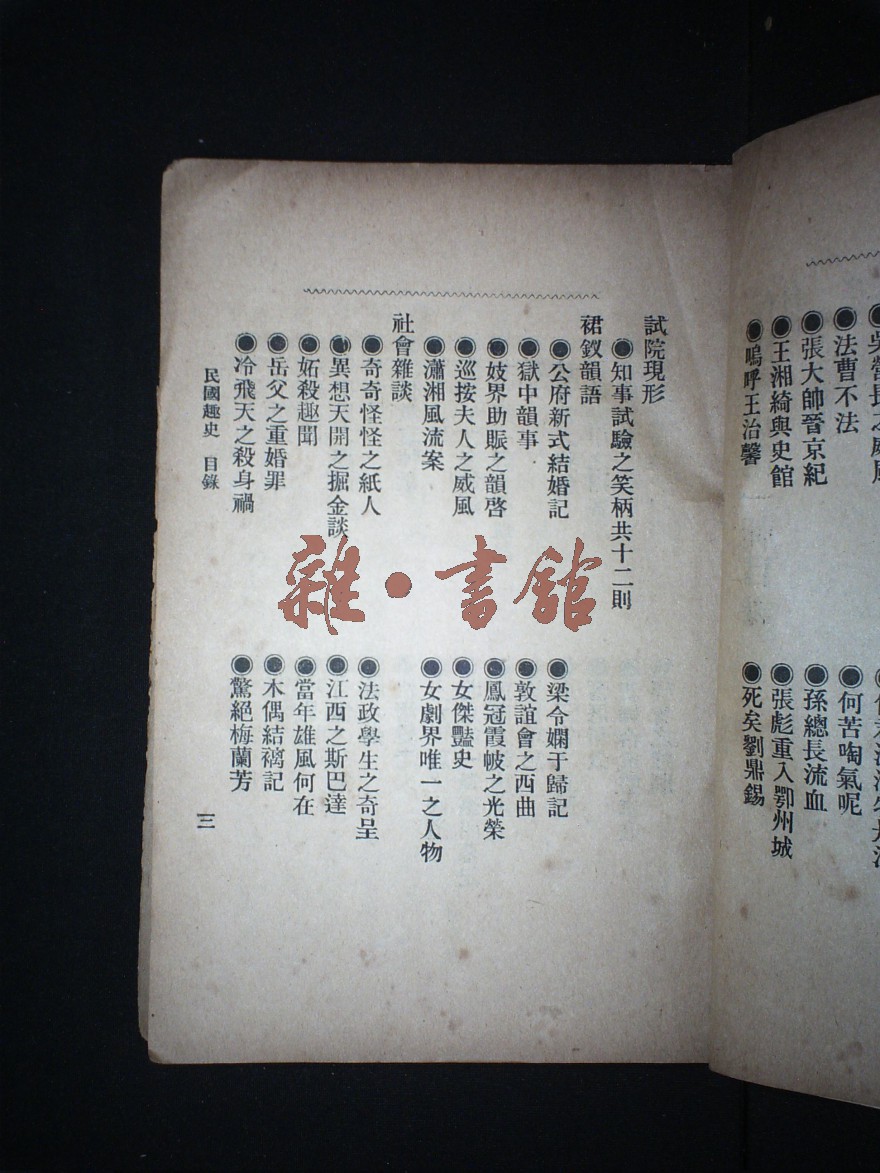 嗚呼王治馨
王湘綺與史館
張大帥晉京紀
法曹不法
死矣劉鼎錫
張彪重入鄂州城
孫總長流血
何苦啕氣呢
試院現形
●知事試驗之笑柄共十二則
裙釵韻語
●公府新式結婚記
●梁令嫻于歸記
●獄中韻事
●敦誼會之西曲
●妓界助賑之韻啓
●鳳冠霞帔之光榮
●巡按夫人之威風
●女傑豔史
●瀟湘風流案
●女劇界唯一之人物
社會雜談
●奇奇怪怪之紙人
●法政學生之奇呈
●異想天開之掘金談
●江西之斯巴達
●妬殺趣聞
●當年雄風何在
●岳父之重婚罪
●木偶結褵記
●冷飛天之殺身禍
●驚絕梅蘭芳
民國趣史 目錄
三
雜·書館